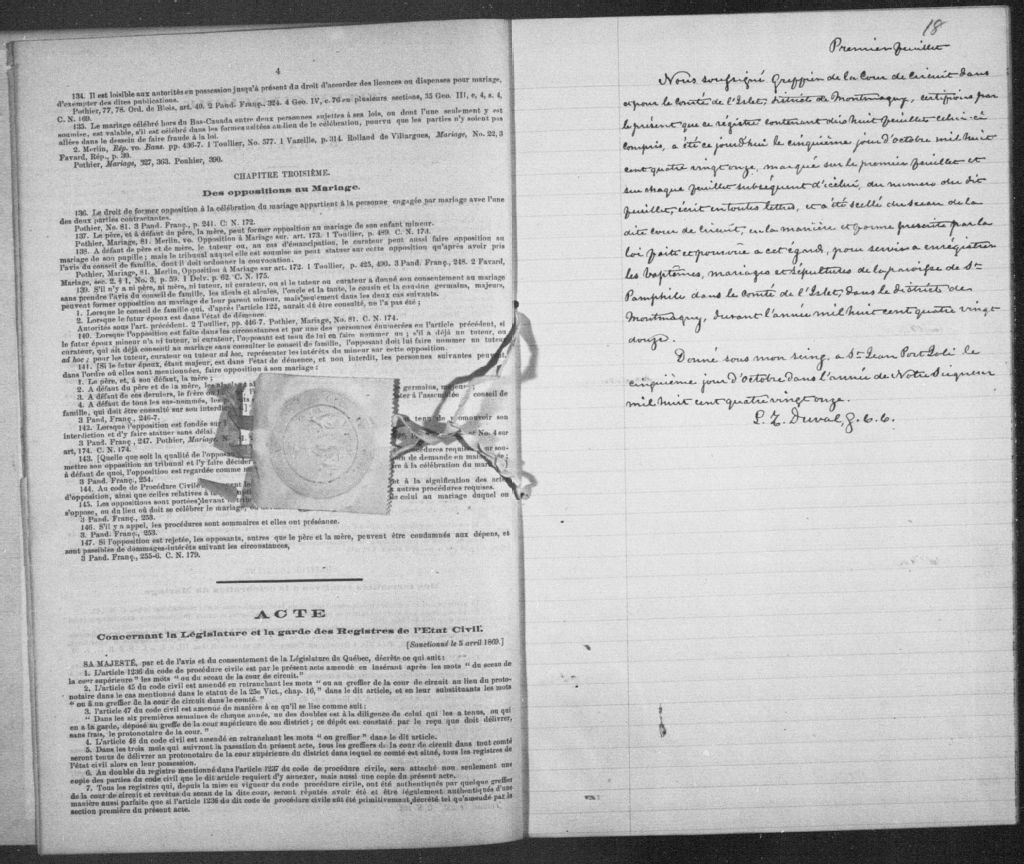 4
134. Il est loisible aux autorités en possession jusqu'à présent du droit d'accorder des licences ou dispenses pour mariage,
d'exempter des dites publications.
Pothier, 77, 78. Ord. de Blois, art. 40. 2 Pand. Franç., 324. 4 Geo. IV, c. 76 en plusieurs sections, 35 Geo. III, c, 4, s. 4,
C. N. 169.
135. Le mariage célébré hors du Bas-Canada entre deux personnes sujettes à ses lois, ou dont l'une seulement y est
soumise, est valable, s'il est célébré dans les formes usitées au lieu de la célébration, pourvu que les parties n'y soient pas
allées dans le dessein de faire fraude à la loi.
2. Merlin, Rép. vo. Bans. pp. 436-7. 1 Toullier, No. 577. 1 Vazeille, p. 314. Rolland de Villargues, Mariage, No. 22, 3
Favard, Rép., p. 39.
Pothier, Mariage, 327, 363. Pothier, 390.
CHAPITRE TROISIÈME.
Des oppositions au Mariage.
136. Le droit de former opposition à la célébration du mariage appartient à la personne engagée par mariage avec l'une
des deux parties contractantes.
Pothier, No. 81. 3 Pand. Franç., p. 241. C. N. 172.
137. Le père, et à défaut du père, la mère, peut former opposition au mariage de son enfant mineur.
Pothier, Mariage, 81. Merlin, vo. Opposition à Mariage sur, art. 173. 1 Toullier, p. 489. C. N. 173.
138. A défaut de père et de mère, le tuteur ou, au cas d'émancipation, le curateur peut aussi faire opposition au
mariage de son pupille; mais le tribunal auquel elle est soumise ne peut statuer sur cette opposition qu'après avoir pris
l'avis du conseil de famille, dont il doit ordonner la convocation.
Pothier, Mariage, 81. Merlin, Opposition à Mariage sur art. 172. 1 Toullier, p. 425, 490. 3 Pand. Franç., 248. 2 Favard,
Mariage, sec. 2. § 1, No. 3, p. 59. 1 Delv. p. 62. C. N. 175.
139. S'il n'y a ni père, ni mère, ni tuteur, ni curateur, ou si le tuteur ou curateur a donné son consentement au mariage
sans prendre l'avis du conseil de famille, les aïeuls et aïeules, l'oncle et la tante, le cousin et la cousine germains, majeurs,
peuvent former opposition au mariage de leur parent mineur, mais seulement dans les deux cas suivants.
1. Lorsque le conseil de famille qui, d'après l'article 122, aurait dû être consulté, ne l'a pas été;
2. Lorsque le futur époux est dans l'état de démence.
Autorités sous l'art. précédent. 2 Toullier, pp. 446-7. Pothier, Mariage, No. 81. C. N. 174.
140. Lorsque l'opposition est faite dans les circonstances et par une des personnes énumérées en l'article précédent, si
le futur époux mineur n'a ni tuteur, ni curateur, l'opposant est tenu de lui en faire nommer un; s'il a déjà un tuteur ou
curateur, qui ait déjà consenti au mariage sans consulter le conseil de famille, l'opposant doit lui faire nommer un tuteur
ad hoc; pour les tuteur, curateur ou tuteur ad hoc, représenter les intérêts du mineur sur cette opposition.
141. [Si le futur époux, étant majeur, est dans l'état de démence, et non interdit, les personnes suivantes peuvent,
dans l'ordre où elles sont mentionnées, faire opposition à son mariage:
1. Le père, et, à son défaut, la mère;
2. A défaut du père et de la mère, les germains, majeurs;
3. A défaut de ces derniers, le frère ou
4. A défaut de tous les sus-nommés, les ster à l'assemblée conseil de
famille, qui doit être consulté sur son interdiction.]
3 Pand. Franç., 246-7.
142. Lorsque l'opposition est fondée sur tenu de promouvoir son
interdiction et d'y faire statuer sans délai.
3 Pand. Franç., 247. Pothier, Mariage, No. 4 sur
art, 174. C. N. 174.
143. [Quelle que soit la qualité de l'opposant procédures requises sou-
mettre son opposition au tribunal et l'y faire décider demande en main
à défaut de quoi, l'opposition est regardée comme à la célébration du mar
3 Pand. Franç., 254.
144. Au code de Procédure Civile à la signification des acte
d'opposition, ainsi que celles relatives à autres procédures requises.
145. Les oppositions sont portées devant de celui au mariage duquel on
s'oppose, ou du lieu où doit se célébrer le mariage,
3 Pand. Franç., 253.
146. S'il y a appel, les procédures sont sommaires et elles ont préséance.
3. Pand. Franç., 253.
147. Si l'opposition est rejetée, les opposants, autres que le père et la mère, peuvent être condamnés aux dépens, et
sont passibles de dommages-intérêts suivant les circonstances,
3 Pand. Franç., 255-6. C. N. 179.
ACTE
Concernant la Législature et la garde des Registres de l'Etat Civil.
[Sanctionné le 5 avril 1869.]
SA MAJESTÉ, par et de l'avis et du consentement de la Législature de Québec, décrète ce qui suit:
1. L'article 1236 du code de procédure civile est par le présent acte amendé en insérant après les mots "du sceau de
la cour supérieure" les mots "ou du sceau de la cour de circuit."
2. L'article 45 du code civil est amendé en retranchant les mots "ou au greffier de la cour de circuit au lieu du proto-
notaire dans le cas mentionné dans le statut de la 25e Vict., chap. 16," dans le dit article, et en leur substituant les mots
"ou à un greffier de la cour de circuit dans le comté."
3. l'article 47 du code civil est amendé de manière à en qu'il se lise comme suit:
"Dans les six premières semaines de chaque année, un des doubles est à la diligence de celui qui les a tenus, ou qui
en a la garde, déposé au greffe de la cour supérieure de son district; ce dépôt est constaté par le reçu que doit délivrer,
sans frais, le protonotaire de la cour."
4. L'article 48 du code civil est amendé en retranchant les mots "ou greffier" dans le dit article.
5. Dans les trois mois qui suivront la passation du présent acte, tous les greffiers de la cour de circuit dans tout comté
seront tenus de délivrer au protonotaire de la cour supérieure du district dans lequel ce comté est situé, tous les registres de
l'état civil alors en leur possession.
6. Au double du registre mentionné dans l'article 1237 du code de procédure civile, sera attaché non seulement une
copie des parties du code civil que le dit article requiert d'y annexer, mais aussi une copie du présent acte.
7. Tous les registres qui, depuis la mise en vigueur du code de procédure civile, ont été authentiqués par quelque greffier
de la cour de circuit et revêtus du sceau de la dite cour, seront réputés avoir été et être légalement authentiqués d'une
manière aussi parfaite que si l'article 1236 du dit code de procédure civile eût été primitivement décrété tel qu'amendé par la
section première du présent acte.
18
Premier feuillet
Nous soussigné Greffier de la Cour de Circuit dans
et pour le Comté de l'Islet, district de Montmagny, certifions par
le présent que ce régistre contenant dix huit feuillets celui-ci
compris, a été ce jourd'hui le cinquième jour d'octobre mil huit
cent quatre vingt onze, marqué sur le premier feuillet et
sur chaque feuillet subséquent d'icelui, du numero du dit
feuillet, écrit en toutes lettres, et a été scellé du sceau de la
dite cour de Circuit, en la manière et forme prescrite par la
loi faite et pourvue à cet égard, pour servir à enregistrer
les baptêmes, mariages et sépultures de la paroisse de St
Pamphile dans le Comté de l'Islet, dans le district de
Montmagny, durant l'année mil huit cent quatre vingt
douze.
Donné sous mon seing, à St Jean Port Joli le
cinquième jour d'Octobre dans l'année de Notre Seigneur
mil huit cent quatre vingt onze.
L. Z. Duval, G. C. C.